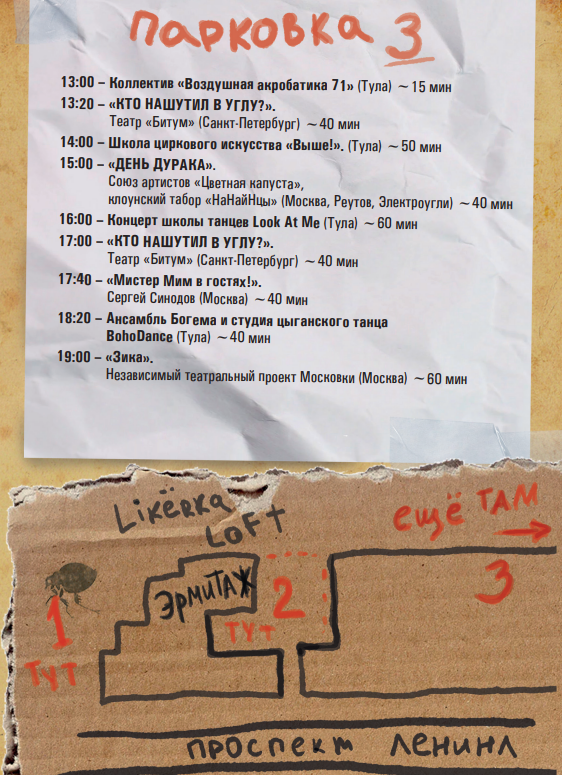 ПАРКОВКА 3
13:00 – Коллектив «Воздушная акробатика 71» (Тула) ~ 15 мин
13:20 – «КТО НАШУТИЛ В УГЛУ?».
Театр «Битум» (Санкт-Петербург) ~ 40 мин
14:00 – Школа циркового искусства «Выше!». (Тула) ~ 50 мин
15:00 – «ДЕНЬ ДУРАКА».
Союз артистов «Цветная капуста»,
клоунский табор «НаНайНцы» (Москва, Реутов, Электроугли) ~ 40 мин
16:00 – Концерт школы танцев Look At Me (Тула) ~ 60 мин
17:00 – «КТО НАШУТИЛ В УГЛУ?».
Театр «Битум» (Санкт-Петербург) ~ 40 мин
17:40 – «Мистер Мим в гостях!».
Сергей Синодов (Москва) ~ 40 мин
18:20 – Ансамбль Богема и студия цыганского танца
BohoDance (Тула) ~ 40 мин
19:00 – «Зика».
Независимый театральный проект Московки (Москва) ~ 60 мин
Likёrka
LOFt
ЕЩЁ ТАМ
3
ЭРМИТАЖ
2
ТУТ
1
ТУТ
ПРОСПЕКТ ЛЕНИНА